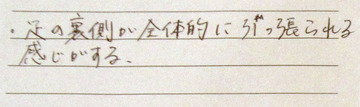 ・足の裏側が全体的に引っ張られる
感じがする、